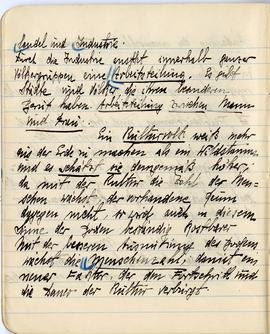 Handel und Industrie.
Durch die Industrie entsteht innerhalb ganzer
Völkergruppen eine Arbeitsteilung. Es gibt
Städte und Völker die ihren besonderen
Beruf haben. Arbeitsteilung zwischen Mann
und Frau.
Ein Kulturvolk weiß mehr
aus der Erde zu machen als ein Wildstamm
und es schätzt sie demgemäß höher,
da mit der Kultur die Zahl der Men-
schen wächst, der vorhandene Raum
dagegen nicht, so wird auch in diesem
Sinne der Boden beständig kostbarer
Mit der besseren Ausnützung des Bodens
wächst die Menschenzahl, damit ein
neuer Faktor, der den Fortschritt und
die Dauer der Kultur verbürgt.